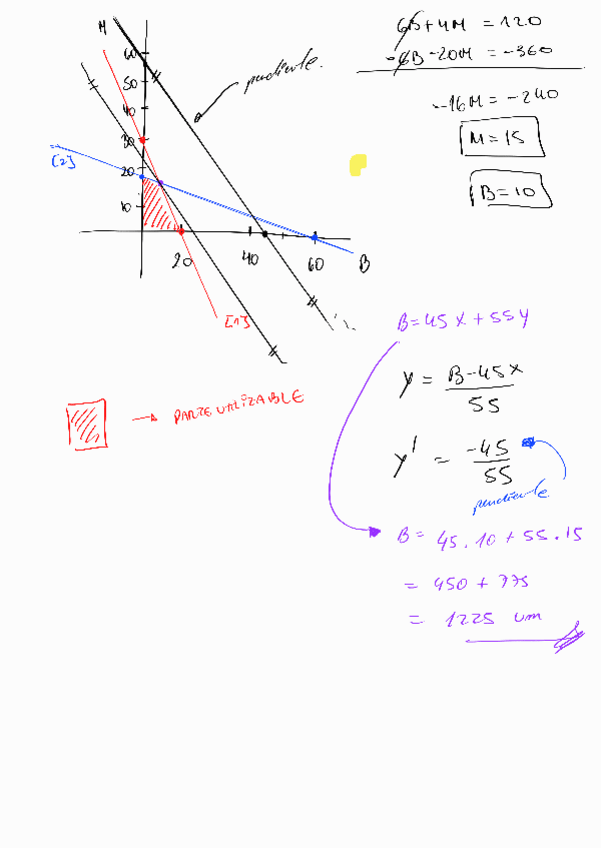 6B+4M = 120
-6B-20M = -360
-16M = -240
M = 15
B = 10
M
60
50
40
30
20
10
pendiente.
[2]
20
40
60
B
[1]
PARTE UTILIZABLE
B = 45x + 55y
y = B-45x / 55
y' = -45 / 55
pendiente
B = 45.10 + 55.15
= 450 + 775
= 1225 um